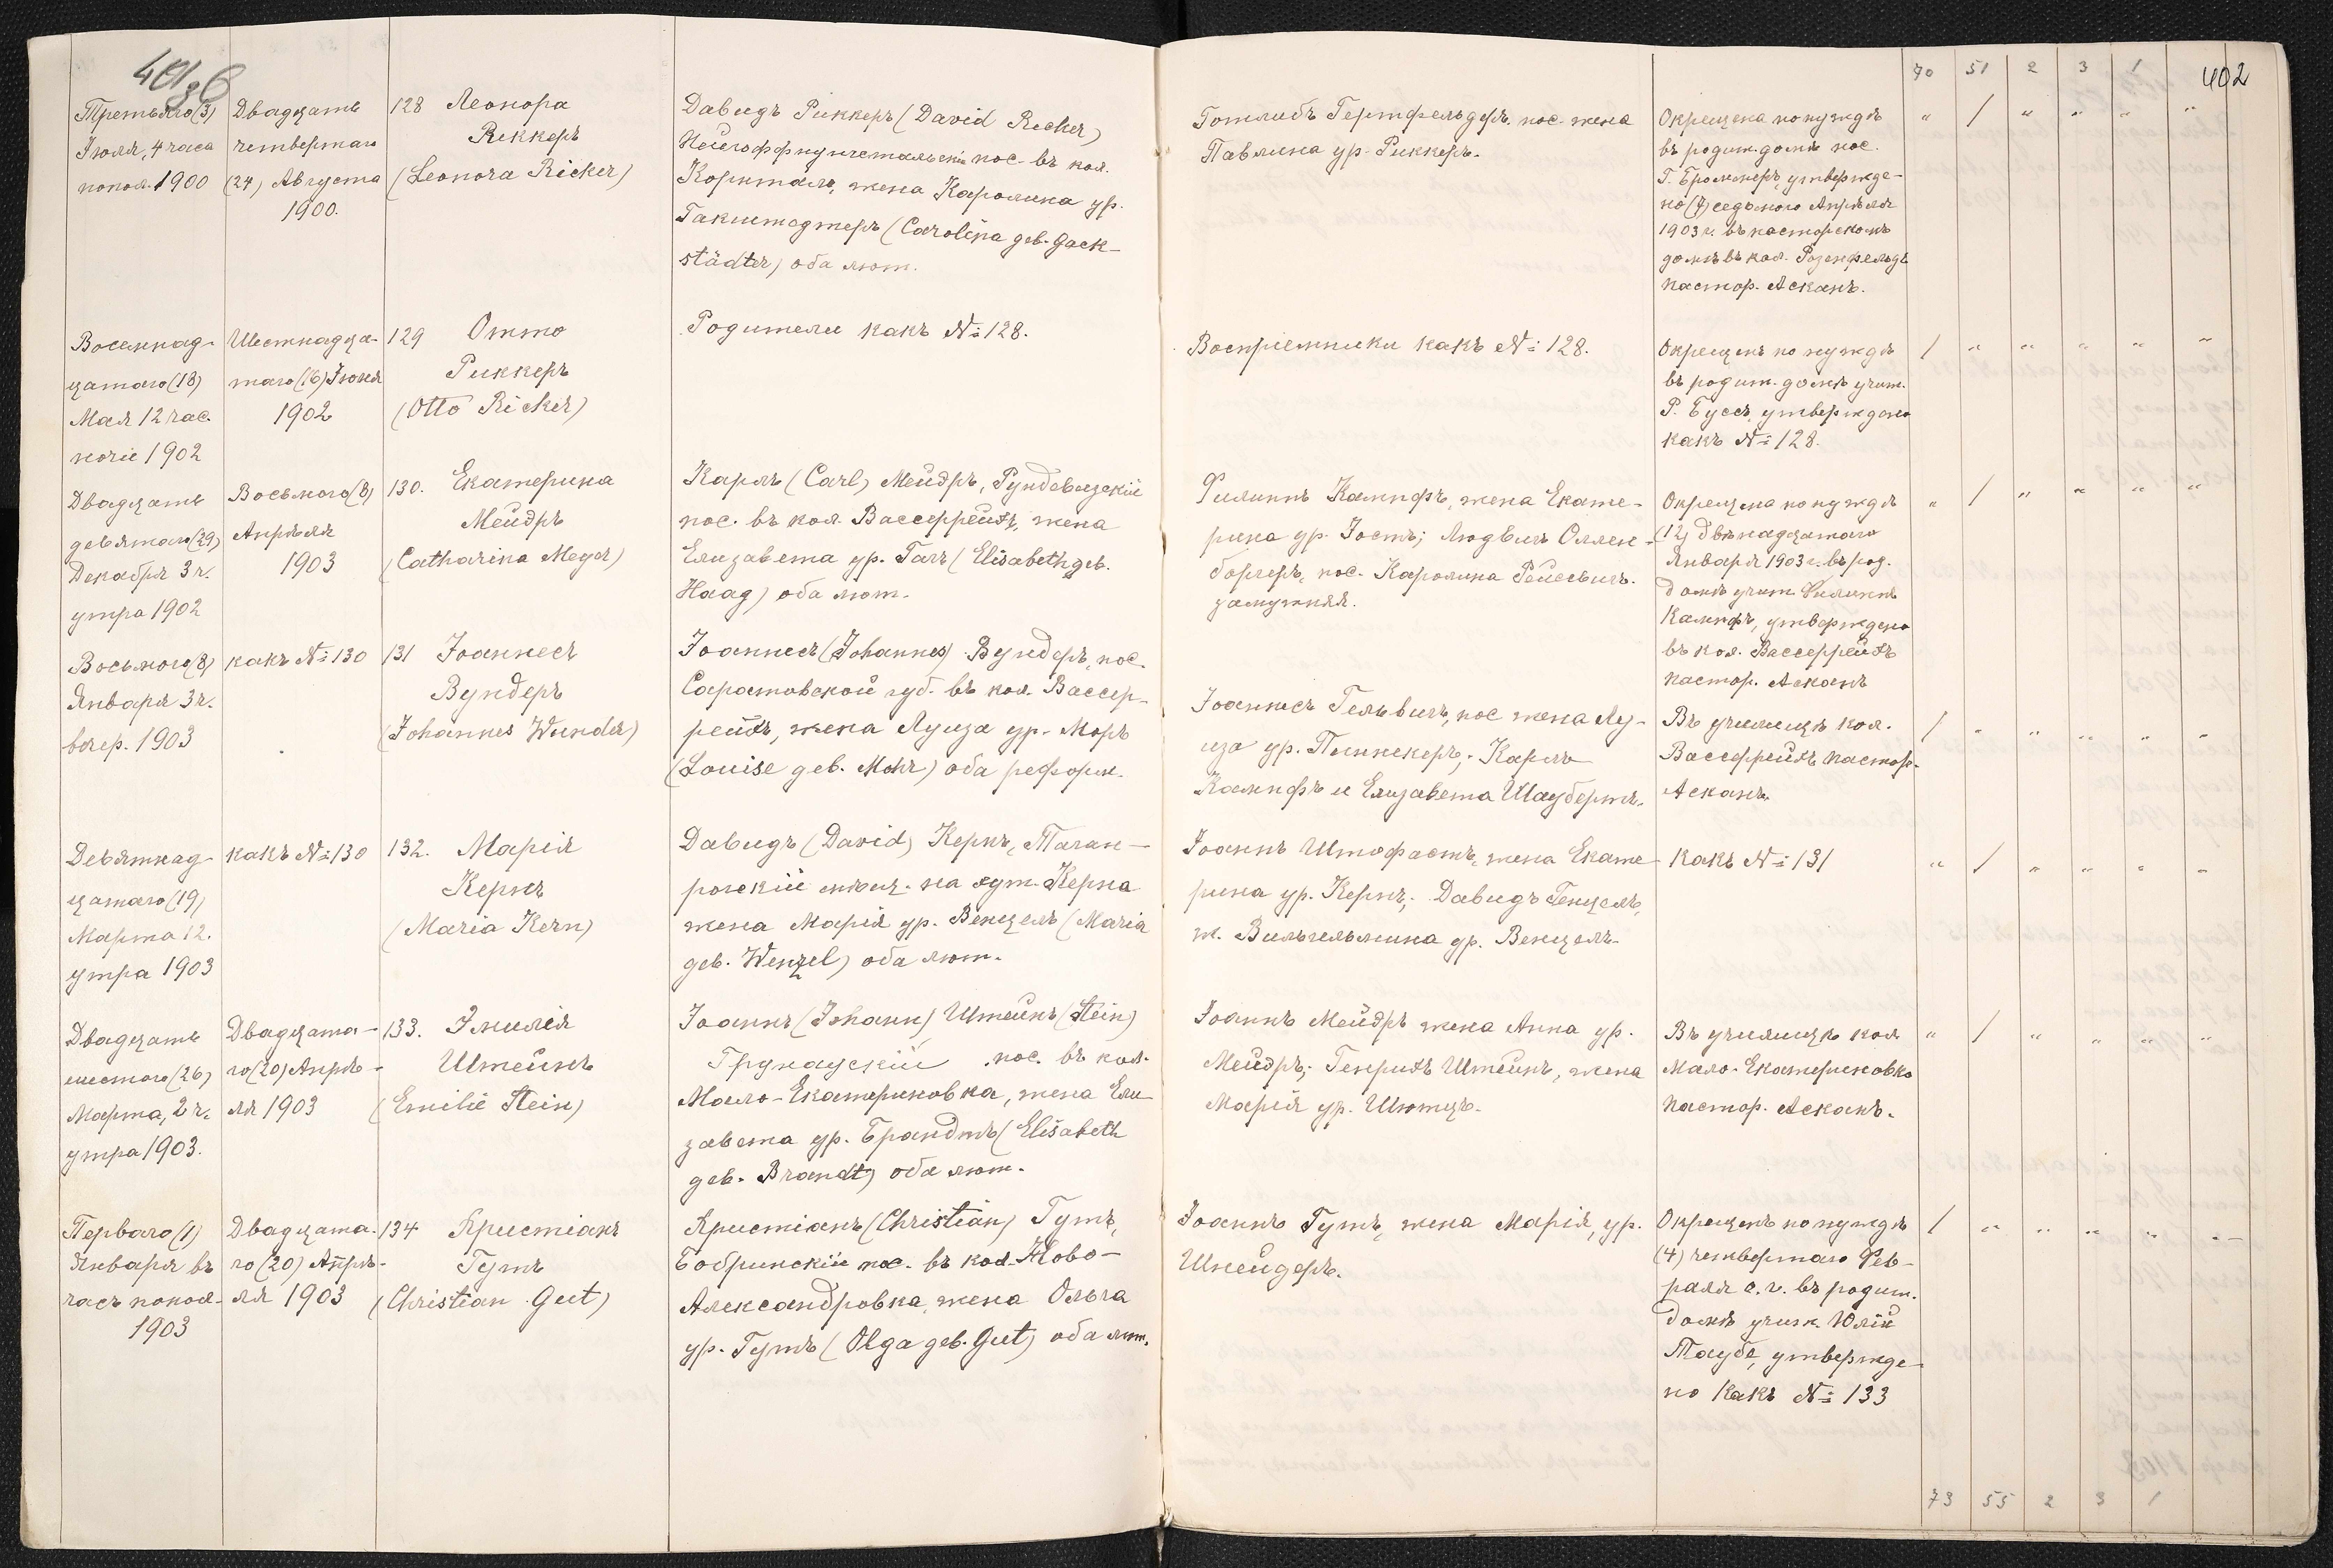 402
70 51 2 3 1
Третьяго (3)
Іюля, 4 часа
попол. 1900
Двадцать
четвертаго
(24) Августа
1900.
128 Леонора
Риккеръ
(Leonora Ricker)
Давидъ Риккеръ (David Ricker)
пос. въ кол.
Корнталь, жена Каролина ур.
Гакштедтеръ (Carolina geb. Hack-
städter) оба лют.
Готлибъ Гертфельдеръ, пос. жена
Павлина ур. Риккеръ.
Окрещена по нуждѣ
въ родит. домѣ пос.
утвержде-
но (7) седьмого Апрѣля
1903 г. въ пасторскомъ
домѣ въ кол. Розенфельдъ
Пастор. Асканъ.
" / " " " "
Восемнад-
цатаго (18)
Мая 12 час.
ночи 1902
Шестнадца-
таго (16) Іюня
1902
129 Отто
Риккеръ
(Otto Ricker)
Родители какъ № 128.
Воспріемники какъ № 128.
Окрещенъ по нуждѣ
въ родит. домѣ учит.
Р. Буссъ, утверждено
какъ № 128.
/ " " " " "
Двадцать
девятаго (29)
Декабря 3 ч.
утра 1902
Восьмого (8)
Апрѣля
1903
130. Екатерина
Мейэръ
(Catharina Meyer)
Карлъ (Carl) Мейэръ, Рундевизскій
пос. въ кол. Вассеррейхъ, жена
Елизавета ур. Гагъ (Elisabeth geb.
Haag) оба лют.
Филиппъ Кампфъ, жена Екате-
рина ур. Іостъ; Людвигъ Оллен-
боргеръ, пос. Каролина
замужняя.
Окрещена по нуждѣ
(12) двѣнадцатаго
Января 1903 г. въ род.
домѣ учит. Филиппъ
Кампфъ, утверждено
въ кол. Вассеррейхъ
Пастор. Асканъ
" / " " " "
Восьмого (8)
Января 3 ч.
вечер. 1903
какъ № 130
131 Іоаннесъ
Вундеръ
(Johannes Wunder)
Іоаннесъ (Johannes) Вундеръ, пос.
Саратовской губ. въ кол. Вассер-
рейхъ, жена Луиза ур. Моръ
(Louise geb. Mohr) оба реформ.
Іоаннесъ Гельвигъ, пос. жена Лу-
иза ур. Пеннекеръ; Карлъ
Кампфъ и Елизавета Шаубертъ.
Въ училищѣ кол.
Вассеррейхъ Пастор.
Асканъ.
/ " " " " "
Девятнад-
цатаго (19)
Марта 12.
утра 1903
какъ № 130
132. Марія
Кернъ
(Maria Kern)
Давидъ (David) Кернъ, Таган-
рогскій мѣщ. на хут. Керна
жена Марія ур. Венцель (Maria
geb. Wenzel) оба лют.
Іоаннъ Штофастъ, жена Екате-
рина ур. Кернъ; Давидъ Генцель,
ж. Вильгельмина ур. Венцель.
Какъ № 131
" / " " " "
Двадцать
шестого (26)
Марта, 2 ч.
утра 1903.
Двадцата-
го (20) Апрѣ-
ля 1903
133. Эмилія
Штейнъ
(Emilie Stein)
Іоаннъ (Johann) Штейнъ (Stein)
Грунаускій пос. въ кол.
Мало-Екатериновка, жена Ели-
завета ур. Брандтъ (Elisabeth
geb. Brandt) оба лют.
Іоаннъ Мейэръ жена Анна ур.
Мейэръ; Генрихъ Штейнъ, жена
Марія ур. Шютцъ.
Въ училищѣ кол.
Мало-Екатериновка
Пастор. Асканъ.
" / " " " "
Перваго (1)
Января въ
часъ попол.
1903
Двадцата-
го (20) Апрѣ-
ля 1903
134 Христіанъ
Гутъ
(Christian Gut)
Христіанъ (Christian) Гутъ,
Бобринскій пос. въ кол. Ново-
Александровка, жена Ольга
ур. Гутъ (Olga geb. Gut) оба лют.
Іоаннъ Гутъ, жена Марія, ур.
Шнейдеръ.
Окрещенъ по нуждѣ
(4) четвертаго Фев-
раля с. г. въ родит.
домѣ учит. Юлій
Таубе, утвержде-
но какъ № 133
/ " " " " "
73 55 2 3 1